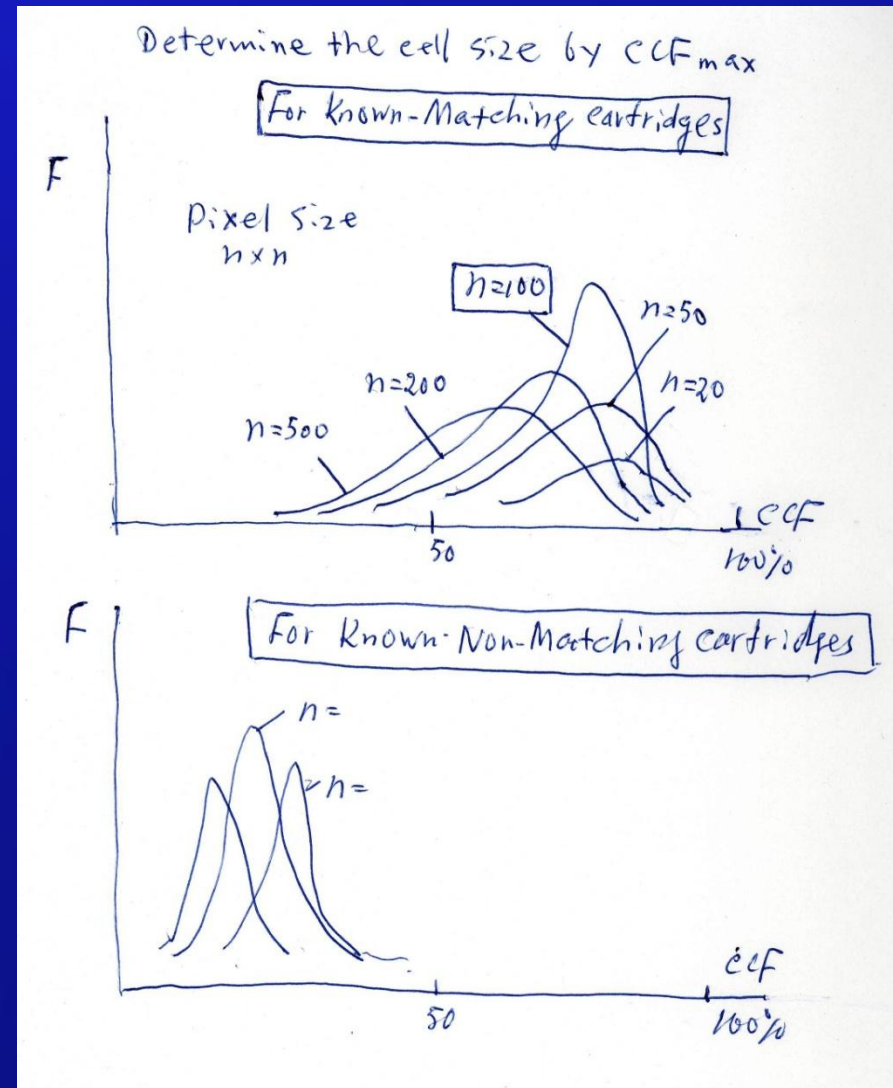 Determine the cell size by CCFmax
For Known-Matching cartridges
F
Pixel size
n×n
n=100
n=50
n=200
n=20
n=500
CCF
50
100%
F
For Known-Non-Matching cartridges
n=
n=
CCF
50
100%